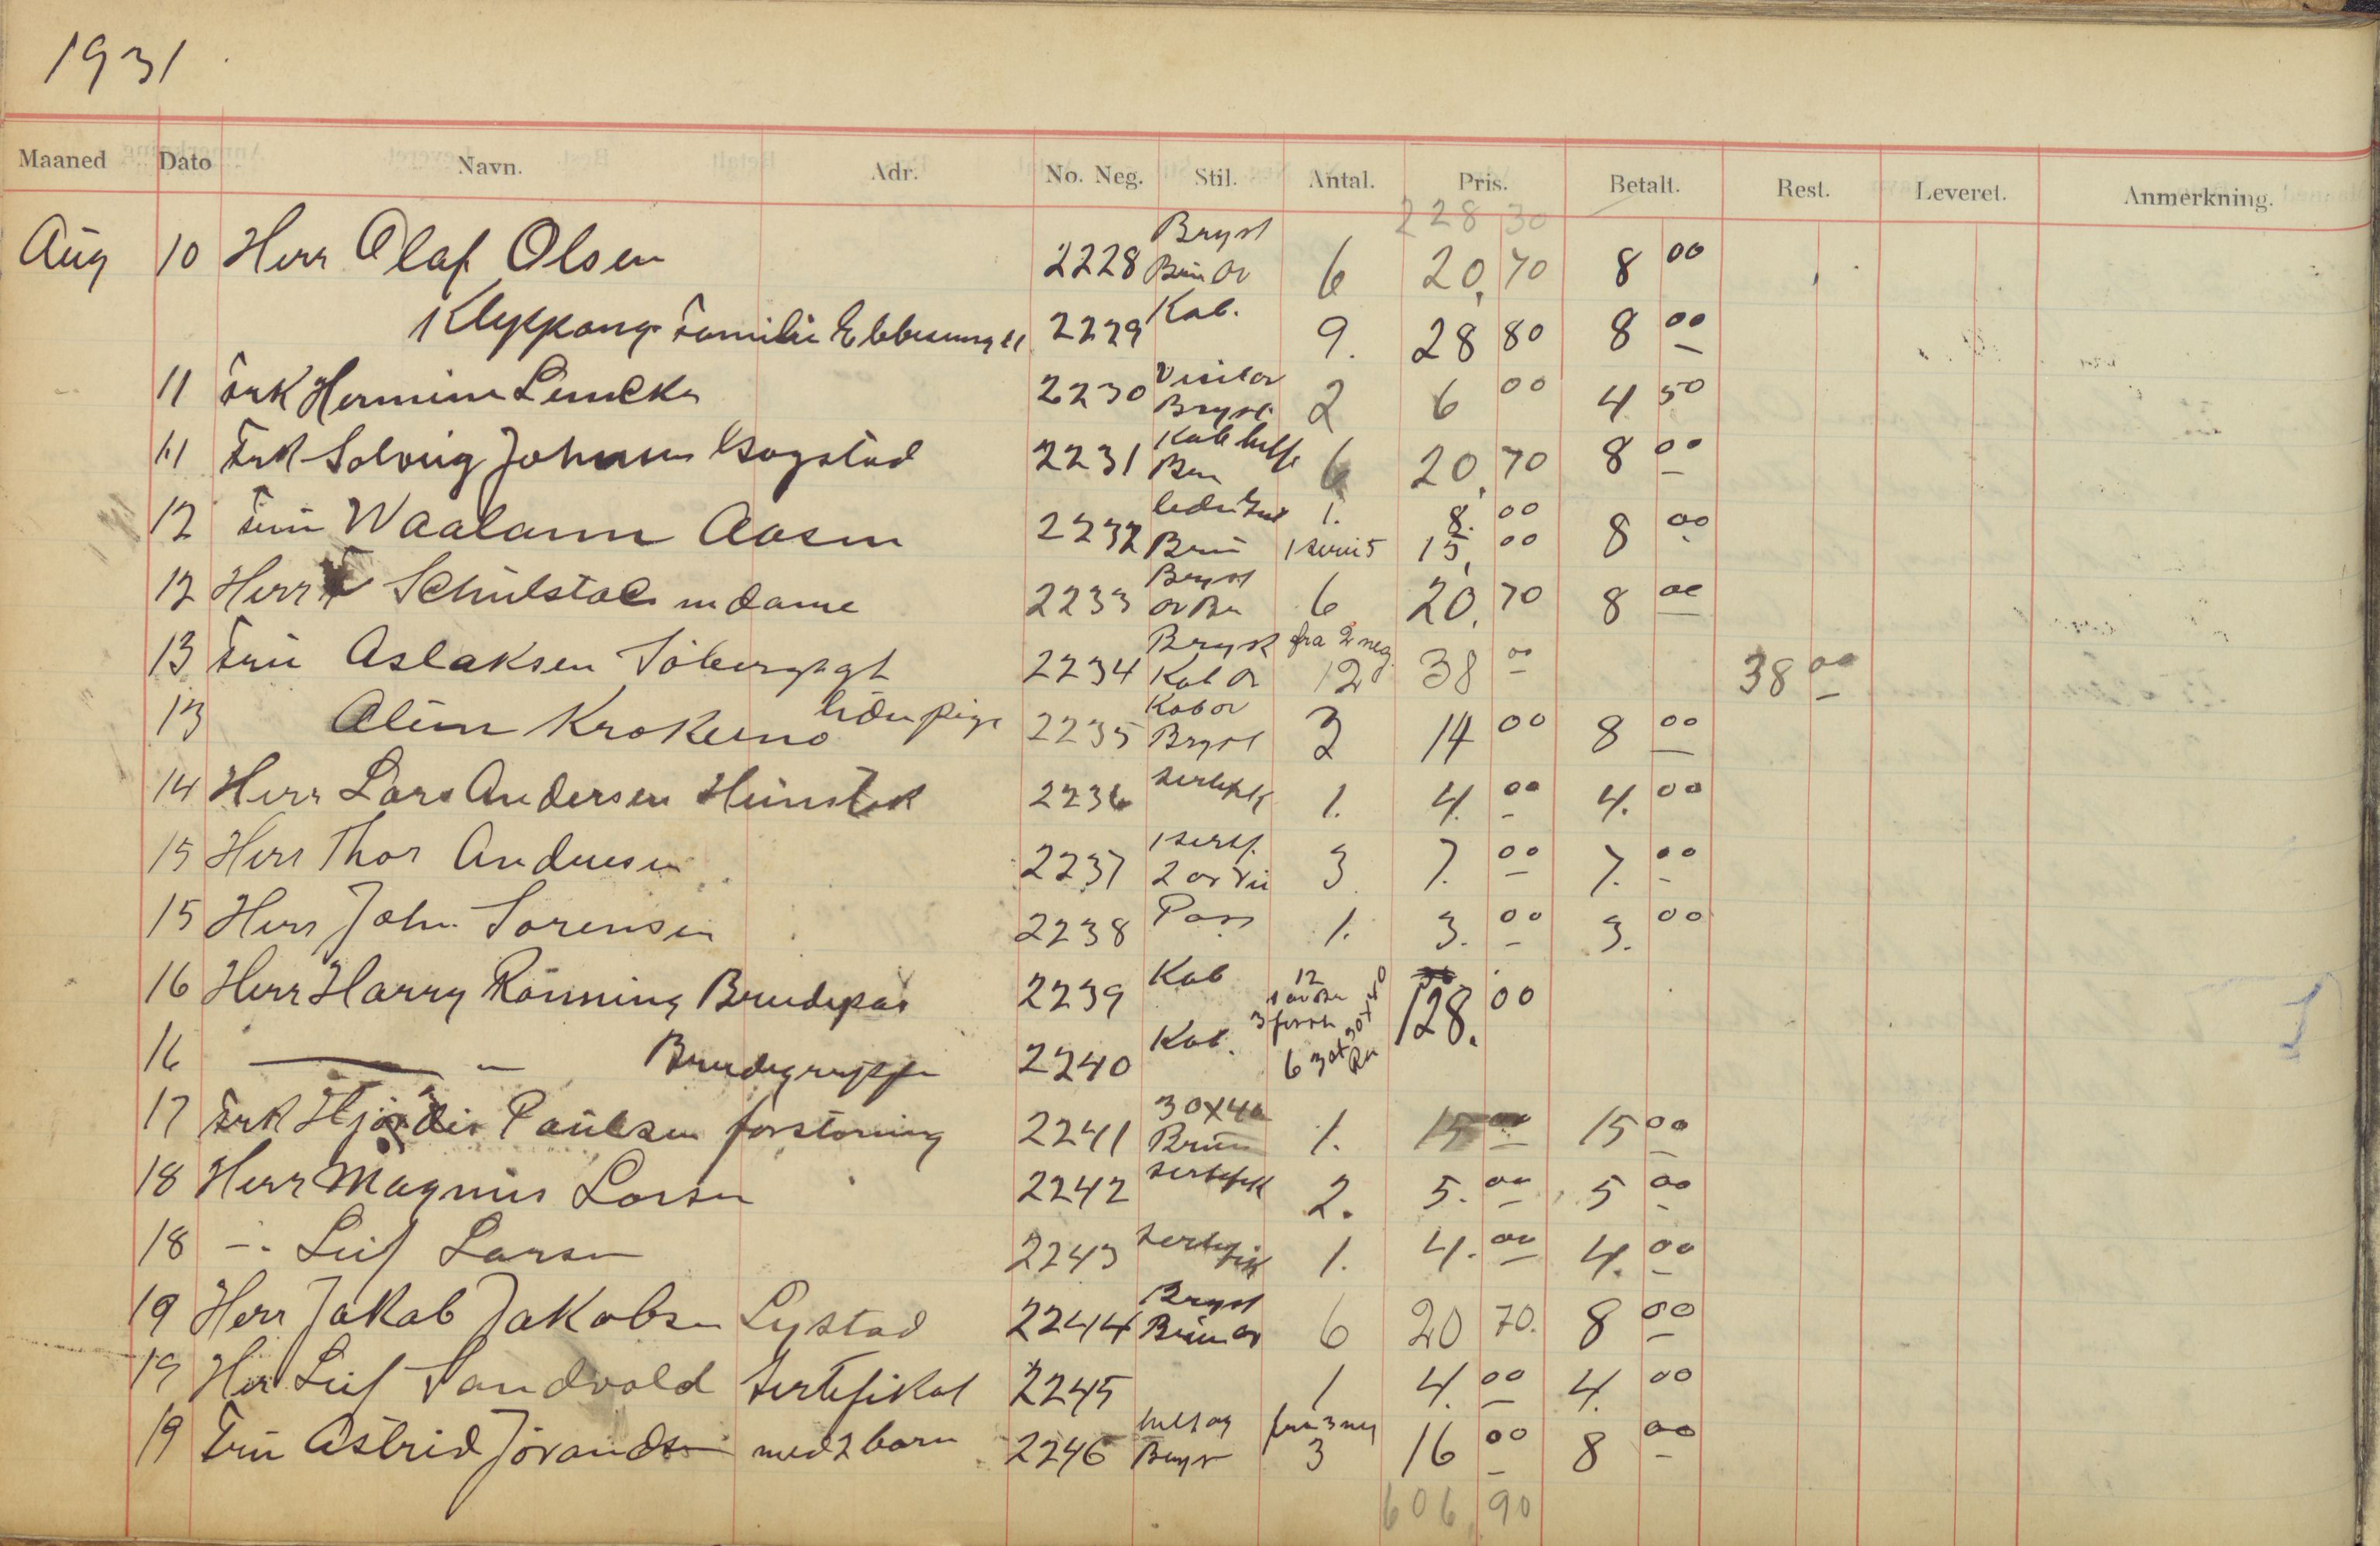 1931
Maaned Dato Navn. Adr. No. Neg. Stil. Antal. Pris. Betalt. Rest. Leveret. Anmerkning.
228 30
Aug 10 Herr Olaf Olsen 2228 Bryst Brun ov 6 20,70 8 00
Familie 2229 Kab. 9. 28 80 8 00
11 Frk Hermine 2230 Visit ov Bryst 2 6 00 4 50
11 Frk Solveig Johnsen 2231 Kab 6 20,70 8 00
12 Fru Waalann Aasen 2232 Brun 1. 8. 00 15, 00 8 00
12 Herr Schulstad m dame 2233 Bryst ov 6 20,70 8 00
13 Fru Aslaksen 2234 Bryst Kab ov fra 2 neg. 12 38 00 38 00
13 2235 Kab ov Bryst 3 14 00 8 00
14 Herr Lars Andersen 2236 sertifik 1. 4. 00 4. 00
15 Herr Thor Andresen 2237 1 sertf. 2 ov 3 7. 00 7. 00
15 Herr John Sorensen 2238 Pass 1. 3. 00 3. 00
16 Herr Harry Rönning Brudepar 2239 Kab 12 128. 00
16 — " — Brudegruppe 2240 Kab. 6 30x40
17 Frk Hjördis Paulsen forstörring 2241 30x40 Brun 1. 15 00 15 00
18 Herr Magnus Larsen 2242 sertifik 2. 5. 00 5 00
18 -- Leif Larsen 2243 sertifik 1. 4. 00 4. 00
19 Herr Jakab Jakobsen Lystad 2244 Bryst Brun ov 6 20 70. 8 00
19 Her Leif Sandvold Sertifikat 2245 1 4. 00 4. 00
19 Fru Astrid med 2 barn 2246 helt og Bryst fra 3 neg 3 16 00 8 00
606,90